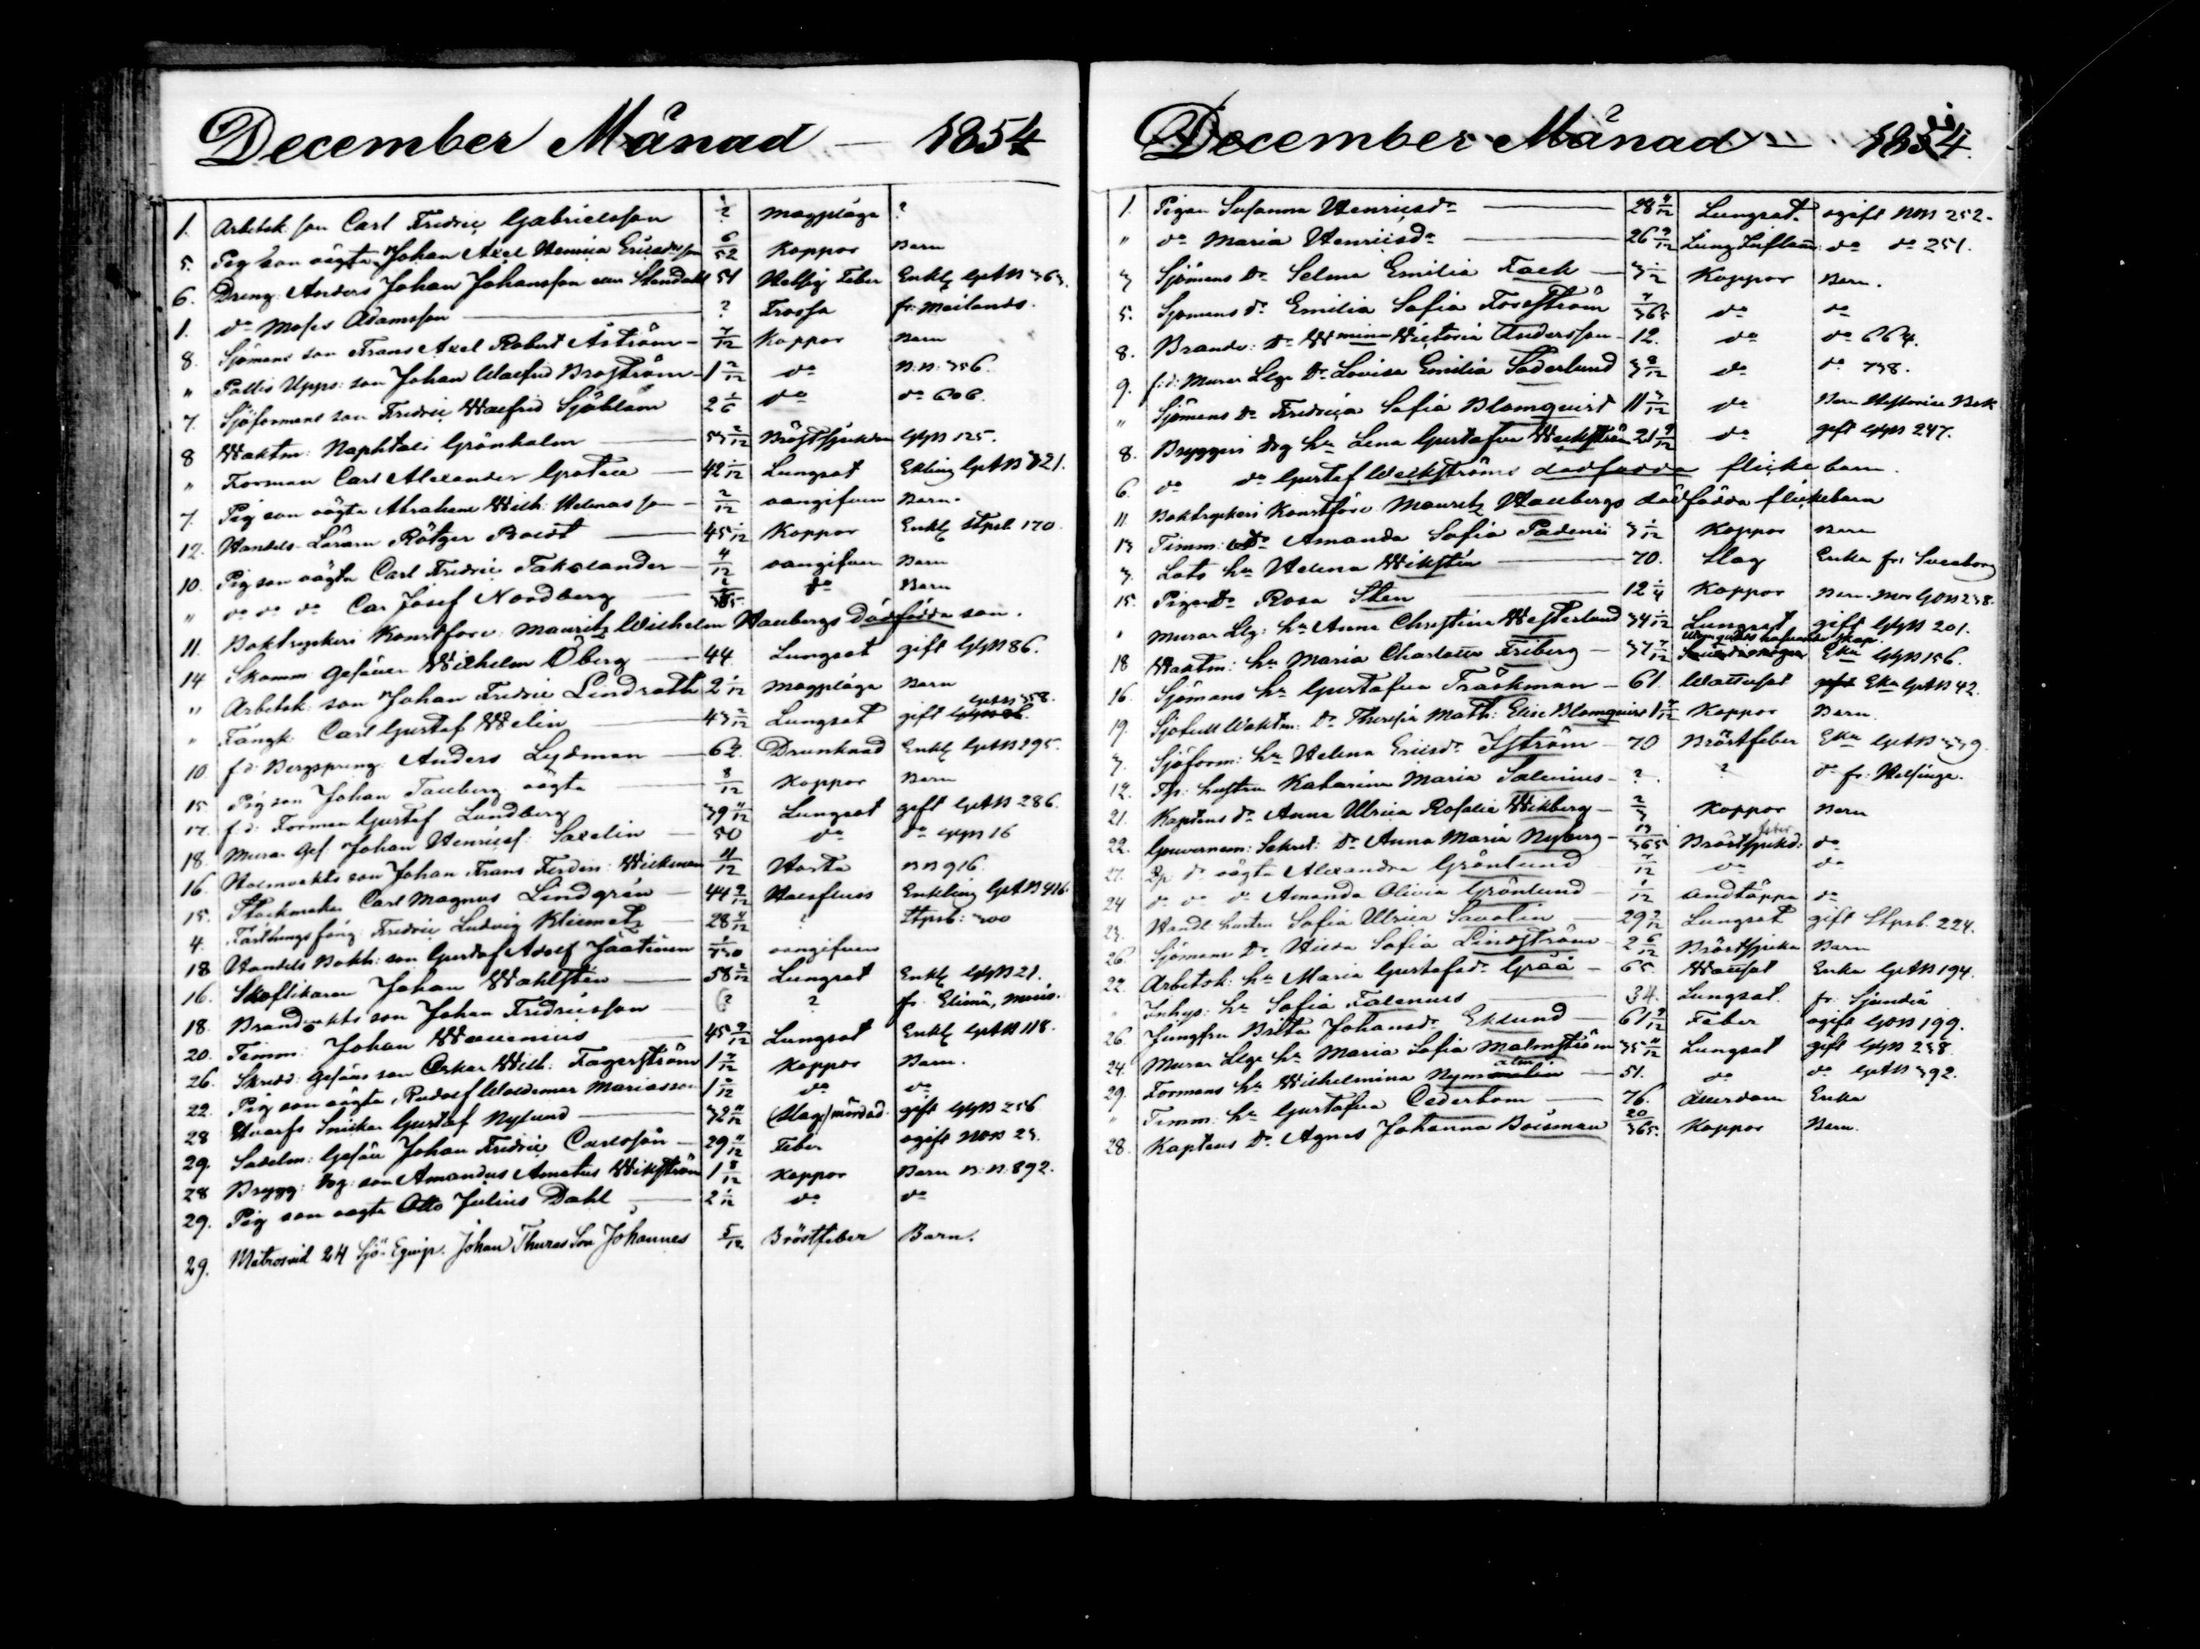 December Månad — 1854
1. Arbetsk: son Carl Fredric Gabrielsson ½ Magplåga ?
5. Pig son oägta Johan Axel Henrica Ericsdr son 6/52 Koppor Barn
6. Dreng: Anders Johan Johansson 51 Feber Enkl GAB 363.
1. do Moses Adamsson ? Frossa fr: Mailands.
8. Sjömans son Frans Axel Robert Åström – 7/12 Koppor Barn
" Pollis Upps: son Johan Walfrid Broström – 1 2/12 do B:B: 356.
7. Sjöformans son Fredric Walfrid Sjöblom 2 1/6 do do 606.
8 Waktm: Naphtali Grönholm — 53 2/12 Bröstsjukdom GPB 125.
" Forman Carl Alexander Grotell — 42 1/12 Lungsot Enkling GAB 321.
7. Pig son oägta Abraham Wilh: Helenas son – 2/12 oangifven Barn.
12. Handels-Lärarn Rötger Boldt — 45 1/12 Koppor Enkl Stpsb 170.
10. Pig son oägta Carl Fredric Takolander – 4/12 oangifven Barn
" do do do Carl Josef Nordberg — 2/365 do Barn
11. Boktryckeri Konstförv: Mauritz Wilhelm Hallbergs Dödfödda son.
14 Skomm: Gesällen Wilhelm Öberg — 44 Lungsot gift GPB 86.
" Arbetsk: son Johan Fredric Lindroth 2 1/12 Magplåga Barn
" Fångk: Carl Gustaf Welin — 43 2/12 Lungsot gift GAB 358.
10 f.d. Bergspreng: Anders Lydman — 62. Drunknad Enkl GAB 295.
15 Pig son Johan Tallberg oägta — 8/12 Koppor Barn
17. f.d. Forman Gustaf Lundberg 39 11/12 Lungsot gift GAB 286.
18. Murar Gef: Johan Henricsf: Saxelin — 50 do do GPB 16
16. Holmvakts son Johan Frans Ferdin: Wickman 11/12 Hosta BB 916.
15. Stockmakar Carl Magnus Lindgrén — 44 9/12 Halsfluss Enkling GAB 416
4. Fästnings fång: Fredric Ludvig Kliemetz — 28 4/12 ? Stpsb: 300
18 Handels Bokh: son Gustaf Adolf Jaatinen 1/730 oangifven
16. Skoflikaren Johan Wahlstén — 58 2/12 Lungsot Enkl GPB 21.
18. Brandvakts son Johan Fridricsson — ? ? fr: Elimä,
20. Timm: Johan Wallenius — 45 9/12 Lungsot Enkl GAB 118.
26. Skredd: Gesälls son Oskar Wilh: Fagerström 1 7/12 Koppor Barn.
22. Pig son oägta, Rudolf Woldemar Mariasson 1 2/12 do do
28 Hvarfs Snickar Gustaf Nylund — 32 11/12 (Slag) mördad gift GPB 256
29. Sadelm: Gesäll Johan Fredric Carlsson — 29 11/12 Feber ogift NOB 23.
28 Brygg: Dg: son Amandus Amatus Wikström 1 8/12 Koppor Barn B:B: 892.
29. Pig son oägta Otto Julius Dahl — 2 1/12 do do
29. Matros vid 24 Sjö-Equip. Johan Thures Son Johannes 5/12 Bröstfeber Barn.
December Månad — 1854.
1. Pigan Susanna Henricsdr — 28 9/12 Lungsot. ogift NOB 252.
" do Maria Henricsdr — 26 9/12 Lung Inflam: do do 251.
3 Sjömans Dr Selma Emilia Fock — 3 1/12 Koppor Barn.
5. Sjömans dr Emilia Sofia Forsström 7/365 do do
8. Brandv: Dr Wmina Wictoria Andersson – 12. do do 664.
9. f:d: Murar Llge Dr Lovisa Emilia Söderlund 3 2/12 do do 738.
" Sjömans Dr Fredrica Sofia Blomqvist 11 3/12 do Barn
8. Bryggeri Dzg hu Lena Gustafva Weckström 21 9/12 do gift GPB 247.
6. do do Gustaf Weckströms dödfödda flickebarn.
11 Boktryckeri Konstförv: Mauritz Hallbergs dödfödda flickebarn
13 Timm: Dr Amanda Sofia Padenii 3 1/12 Koppor Barn
3. Lots hu Helena Wiksten — 70. Slag Enka fr: Sveaborg
15. Pigan Dr Rosa Sten — 12 1/4 Koppor Barn. Mor GOB 238.
" Murar Llg: hu Anna Christina Westerlund 34 1/12 Lungsot gift GPB 201.
18 Waktm: hu Maria Charlotta Friberg — 37 7/12 Eka GPB 156.
16. Sjömans hu Gustafva Träskman — 61 Wattusot Eka GAB 42.
19. Sjötull Waktm: Dr Theresia Math: Elise Blomqvist 1 7/12 Koppor Barn.
3. Sjöform: hu Helena Ericsdr Iström — 70 Bröstfeber Eka GAB 339.
12. Tfp: hustru Katharina Maria Salenius – ? ? do fr: Helsinge.
21. Kaptens dr Anna Ulrica Rosalie Wikberg — 2/3 Koppor Barn
22. Gouvernem: Sekret: Dr Anna Maria Nyberg — 13/365 Bröstsjukd: feber do
27. Pg dr oägta Alexandra Grönlund 7/12 do do
24 do do dr Amanda Olivia Grönlund — 1/12 Andtäppa do
23. Handl: hustru Sofia Ulrica Savolin — 29 2/12 Lungsot gift Stpsb. 224.
26. Sjömans Dr Hilda Sofia Lindström — 2 6/12 Bröstsjuka Barn
22. Arbetsk: hu Maria Gustafsdr Gråå — 65. Wattusot Enka GAB 194.
" Inhys: hu Sofia Falenius — 34. Lungsot. fr: Sjundeå
26. Jungfru Brita Johansdr Eklund — 61 9/12 Feber ogift GOB 199.
24. Murar Llge hu Maria Sofia Malmström 35 11/12 Lungsot gift GPB 258
29. Formans hu Wilhelmina — 51. do do GAB 392.
" Timm: hu Gustafva Cederbom — 76. Ålderdom Enka
28. Kaptens Dr Agnes Johanna Boisman 20/365. Koppor Barn.